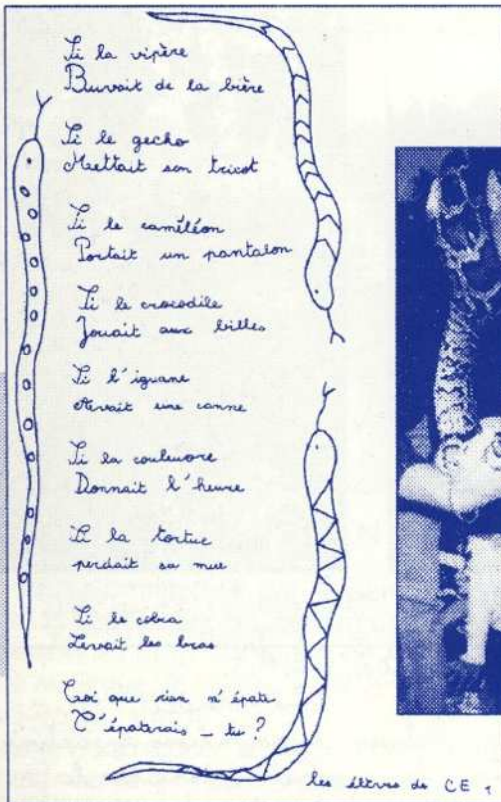 Si la vipère
Buvait de la bière
Si le gecho
Mettait son tricot
Si le caméléon
Portait un pantalon
Si le crocodile
Jouait aux billes
Si l'iguane
Avait une canne
Si la couleuvre
Donnait l'heure
Si la tortue
perdait sa mue
Si le cobra
Levait les bras
Toi que rien n'épate
T'épaterais - tu ?
les élèves de CE 1